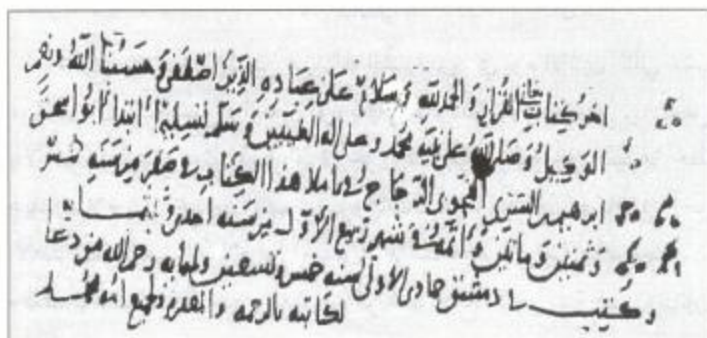 اخر كتاب معاني القران والحمد لله وسلام على عباده الذين اصطفى وحسبنا الله ونعم
الوكيل وصلى الله على نبيه محمد وعلى اله الطيبين وسلم تسليما ابتدا ابو اسحق
ابرهيم بن السري النحوي الزجاج في املا هذا الكتاب في صفر من سنه خمس
وثمنين ومائتين واتمه في شهر ربيع الاول من سنه احدى وثلثمايه
وكتب بدمشق جمادى الاولى سنه خمس وتسعين رحم الله من دعا
لكاتبه بالرحمه والمغفره ولجميع امة محمد